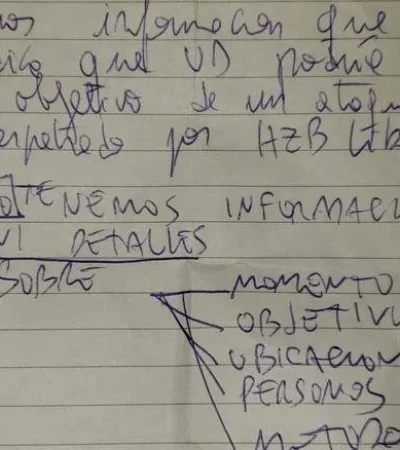 os información que
ico que UD podría
objetivo de un ataqu
erpetrado por HZB Lib
TENEMOS INFORMACI
NI DETALLES
SOBRE
MOMENTO
OBJETIVO
UBICACION
PERSONAS
METODO